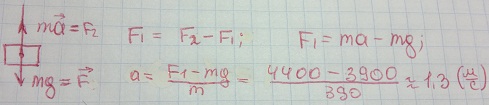 ma⃗ = F₂
F₁ = F₂ − F₁; F₁ = ma − mg;
mg = F⃗
a = F₁ − mg / m = 4400 − 3900 / 390 ≈ 1,3 (м/с)